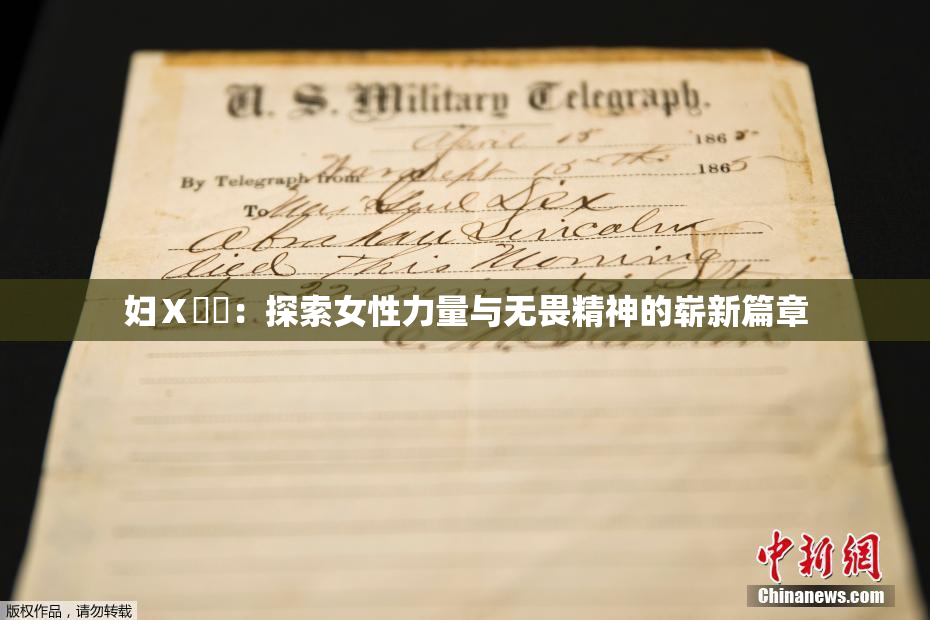 U. S. Military Telegraph.
April 15 1865
By Telegraph from War Dept 15th 1865
To Maj Genl Dix
Abraham Lincoln
died This Morning
at 22 minutes after
妇X：探索女性力量与无畏精神的崭新篇章
E. M. Stanton
中新网
Chinanews.com
版权作品，请勿转载